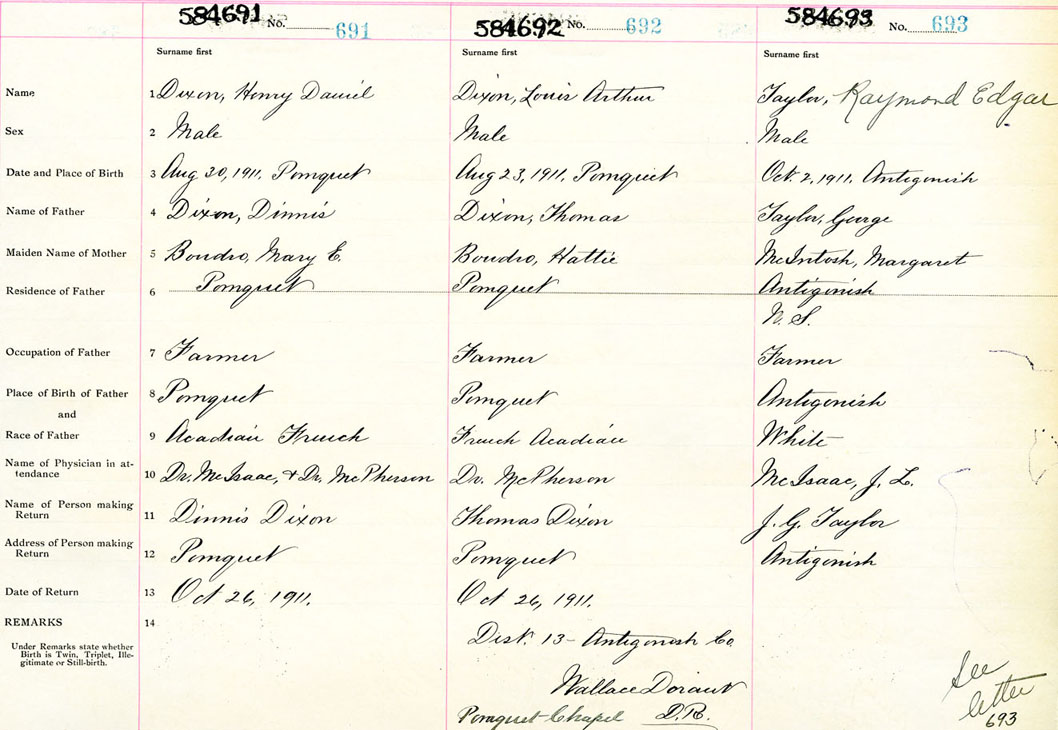 584691 No. 691 584692 No. 692 584693 No. 693
Surname first Surname first Surname first
Name 1 Dixon, Henry Daniel Dixon, Louis Arthur Taylor, Raymond Edgar
Sex 2 Male Male Male
Date and Place of Birth 3 Aug 30, 1911. Pomquet Aug 23, 1911. Pomquet Oct. 2, 1911. Antigonish
Name of Father 4 Dixon, Dinnis Dixon, Thomas Taylor, George
Maiden Name of Mother 5 Boudro, Mary E. Boudro, Hattie McIntosh, Margaret
Residence of Father 6 Pomquet Pomquet Antigonish
N. S.
Occupation of Father 7 Farmer Farmer Farmer
Place of Birth of Father 8 Pomquet Pomquet Antigonish
and
Race of Father 9 Acadian French French Acadian White
Name of Physician in at-
tendance 10 Dr. McIsaac, + Dr. McPherson Dr. McPherson McIsaac, J. L.
Name of Person making
Return 11 Dinnis Dixon Thomas Dixon J. G. Taylor
Address of Person making
Return 12 Pomquet Pomquet Antigonish
Date of Return 13 Oct 26, 1911. Oct 26, 1911.
REMARKS 14
Dist. 13 - Antigonish Co.
Under Remarks state whether
Birth is Twin, Triplet, Ille-
gitimate or Still-birth.
Wallace Dorant
Pomquet Chapel D.R.
See
letter
693